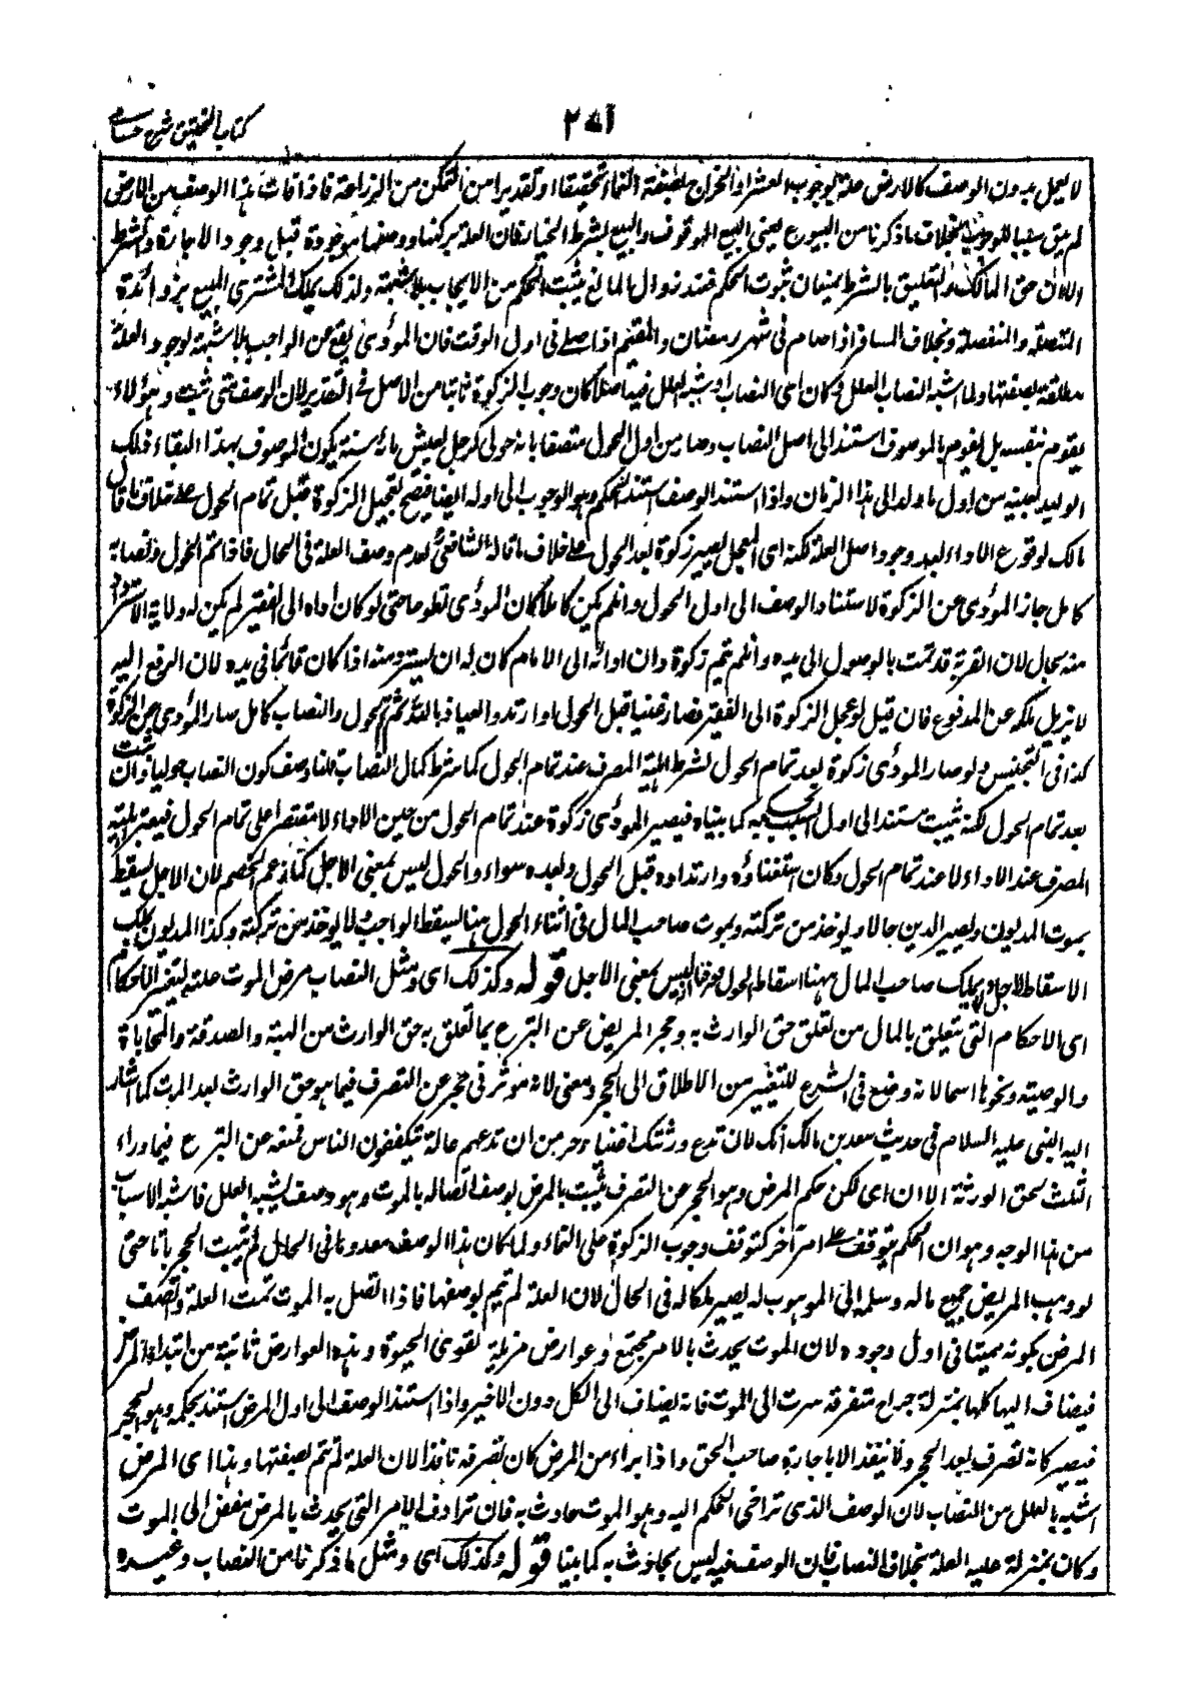 كتاب التحقيق شرح حسامی
لا يعمل بدون الوصف كالارض علة لوجوب العشر او الخراج بصفة النماء تحقيقا او تقديرا من التمكن من الزراعة فاذا فات هذا الوصف من الارض
لم يبق سببا للوجوب بخلاف ما ذكرنا من البيوع يعنى البيع الموقوف والبيع بشرط الخيار فان العلة بركنها ووصفها موجودة قبل وجود الاجازة والشرط
الا ان حق المالك والتعليق بالشرط يمنعان ثبوت الحكم فعند زوال المانع يثبت الحكم من الايجاب بلا شبهة ولذلك يملك المشترى المبيع بزوائده
المتصلة والمنفصلة وبخلاف المسافر اذا صام فى شهر رمضان والمقيم اذا صلے فى اول الوقت فان المؤدى يقع عن الواجب بلا شبهة لوجود العلة
مطلقة بصفتها ولما اشبه النصاب العلل وكان اى النصاب او شبه العلل فيه اصلا كان وجوب الزكوة ثابتا من الاصل فے التقدير لان الوصف متى ثبت وهؤلاء
يقوم بنفسه بل يقوم بالموصوف استند الى اصل النصاب وصار من اول الحول متصفا بانه حولى كرجل يعيش مائة سنة يكون الموصوف بهذا البقاء ذلك
الوليد بعينه من اول ما ولد الى هذا الزمان واذا استند الوصف استند الحكم وهو الوجوب الى اوله ايضا فيصح تعجيل الزكوة قبل تمام الحول علے خلاف ما قال
مالك لوقوع الاداء بعد وجود اصل العلة لكنه اى المعجل يصير زكوة بعد الحول علے خلاف ما قاله الشافعى لعدم وصف العلة فى الحال فاذا تم الحول ونصابه
كامل جاز المؤدى عن الزكوة لاستناد الوصف الى اول الحول وان لم يكن كاملا كان المؤدى تطوعا حتى لو كان اداه الى الفقير لم يكن له ولاية الاسترداد
منه بحال لان القربة قد تمت بالوصول الى يده وان لم تتم زكوة وان اداه الى الامام كان له ان يسترده منه اذا كان قائما فى يده لان الدفع اليه
لا يزيل ملكه عن المدفوع فان قيل لو عجل الزكوة الى الفقير فصار غنيا قبل الحول او ارتد والعياذ بالله ثم تم الحول والنصاب كامل صار المؤدى عن الزكوة
كذا فى التجنيس ولو صار المؤدى زكوة بعد تمام الحول لشرط اهلية المصرف عند تمام الحول كما شرط كمال النصاب قلنا وصف كون النصاب حوليا وان ثبت
بعد تمام الحول لكنه يثبت مستندا الى اول السبب كما بيناه فيصير المؤدى زكوة عند تمام الحول من حين الاداء لا مقتصرا على تمام الحول فيعتبر اهلية
المصرف عند الاداء لا عند تمام الحول وكان استغناؤه وارتداده قبل الحول وبعده سواء والحول ليس بمعنى الاجل كما زعم الخصم لان الاجل يسقط
بموت المديون ويصير الدين حالا ويؤخذ من تركته وبموت صاحب المال فى اثناء الحول هنا يسقط الواجب ولا يوخذ من تركته وكذا المديون يملك
الاسقاط للاجل ولا يملك صاحب المال ههنا اسقاط الحول فعرفنا انه ليس بمعنى الاجل قوله وكذلك اى ومثل النصاب مرض الموت علة لتغير الاحكام
اى الاحكام التى تتعلق بالمال من تعلق حق الوارث به وحجر المريض عن التبرع بما تعلق به حق الوارث من الهبة والصدقة والمحاباة
والوصية ونحوها اسما لانه وضع فى الشرع للتغيير من الاطلاق الى الحجر ومعنى لانه مؤثر فى حجر عن التصرف فيما هو حق الوارث بعد الموت كما اشار
اليه النبى عليه السلام فى حديث سعد بن مالك انك لان تدع ورثتك اغنياء خير من ان تدعهم عالة يتكففون الناس فمنعه عن التبرع فيما وراء
الثلث لحق الورثة الا ان اى لكن حكم المرض وهو الحجر عن التصرف يثبت بالمرض بوصف اتصاله بالموت وهو وصف يشبه العلل فاشبه الاسباب
من هذا الوجه وهو ان الحكم يتوقف علے امر آخر كتوقف وجوب الزكوة على النماء ولما كان هذا الوصف معدوما فى الحال لم يثبت الحجر باتا حتى
لو وهب المريض جميع ماله وسلم الى الموهوب له يصير ملكا له فى الحال لان العلة لم تتم بوصفها فاذا اتصل به الموت تمت العلة واتصف
المرض بكونه مميتا فى اول وجوده لان الموت يحدث بالامر مجتمع وعوارض مزيلة لقوى الحيوة وهذه العوارض ثابتة من ابتداء المرض
فيضاف اليها كلها بمنزلة جراح متفرقة سرت الى الموت فانه يضاف الى الكل دون الاخير واذا استند الوصف الى اول المرض استند بحكمه وهو الحجر
فيصير كانه تصرف بعد الحجر ولا ينفذ الا باجازة صاحب الحق واذا براء من المرض كان تصرفه نافذا لان العلة لم تتم بصفتها وهذا اى المرض
اشبه بالعلل من النصاب لان الوصف الذى تراخى الحكم اليه وهو الموت حادث به فان ترادف الآمر التى يحدث بالمرض مفض الى الموت
وكان بمنزلة علة العلة بخلاف النصاب فان الوصف فيه ليس بحادث به كما بينا قوله وكذلك اى ومثل ما ذكرنا من النصاب وغيره